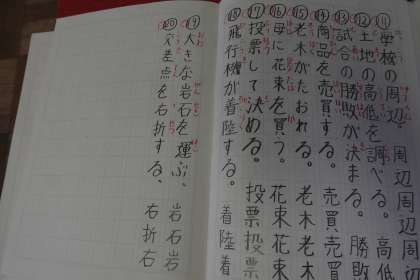 ⑪学校の周辺。周辺周辺
⑫土地の高低を調べる。高低
⑬試合の勝敗が決まる。勝敗
⑭商品を売買する。売買売買
⑮老木がたおれる。老木老木
⑯母に花束を買う。花束花束
⑰投票して決める。投票投票
⑱飛行機が着陸する。着陸着
⑲大きな岩石を運ぶ、岩石岩
⑳交差点を右折する、右折右